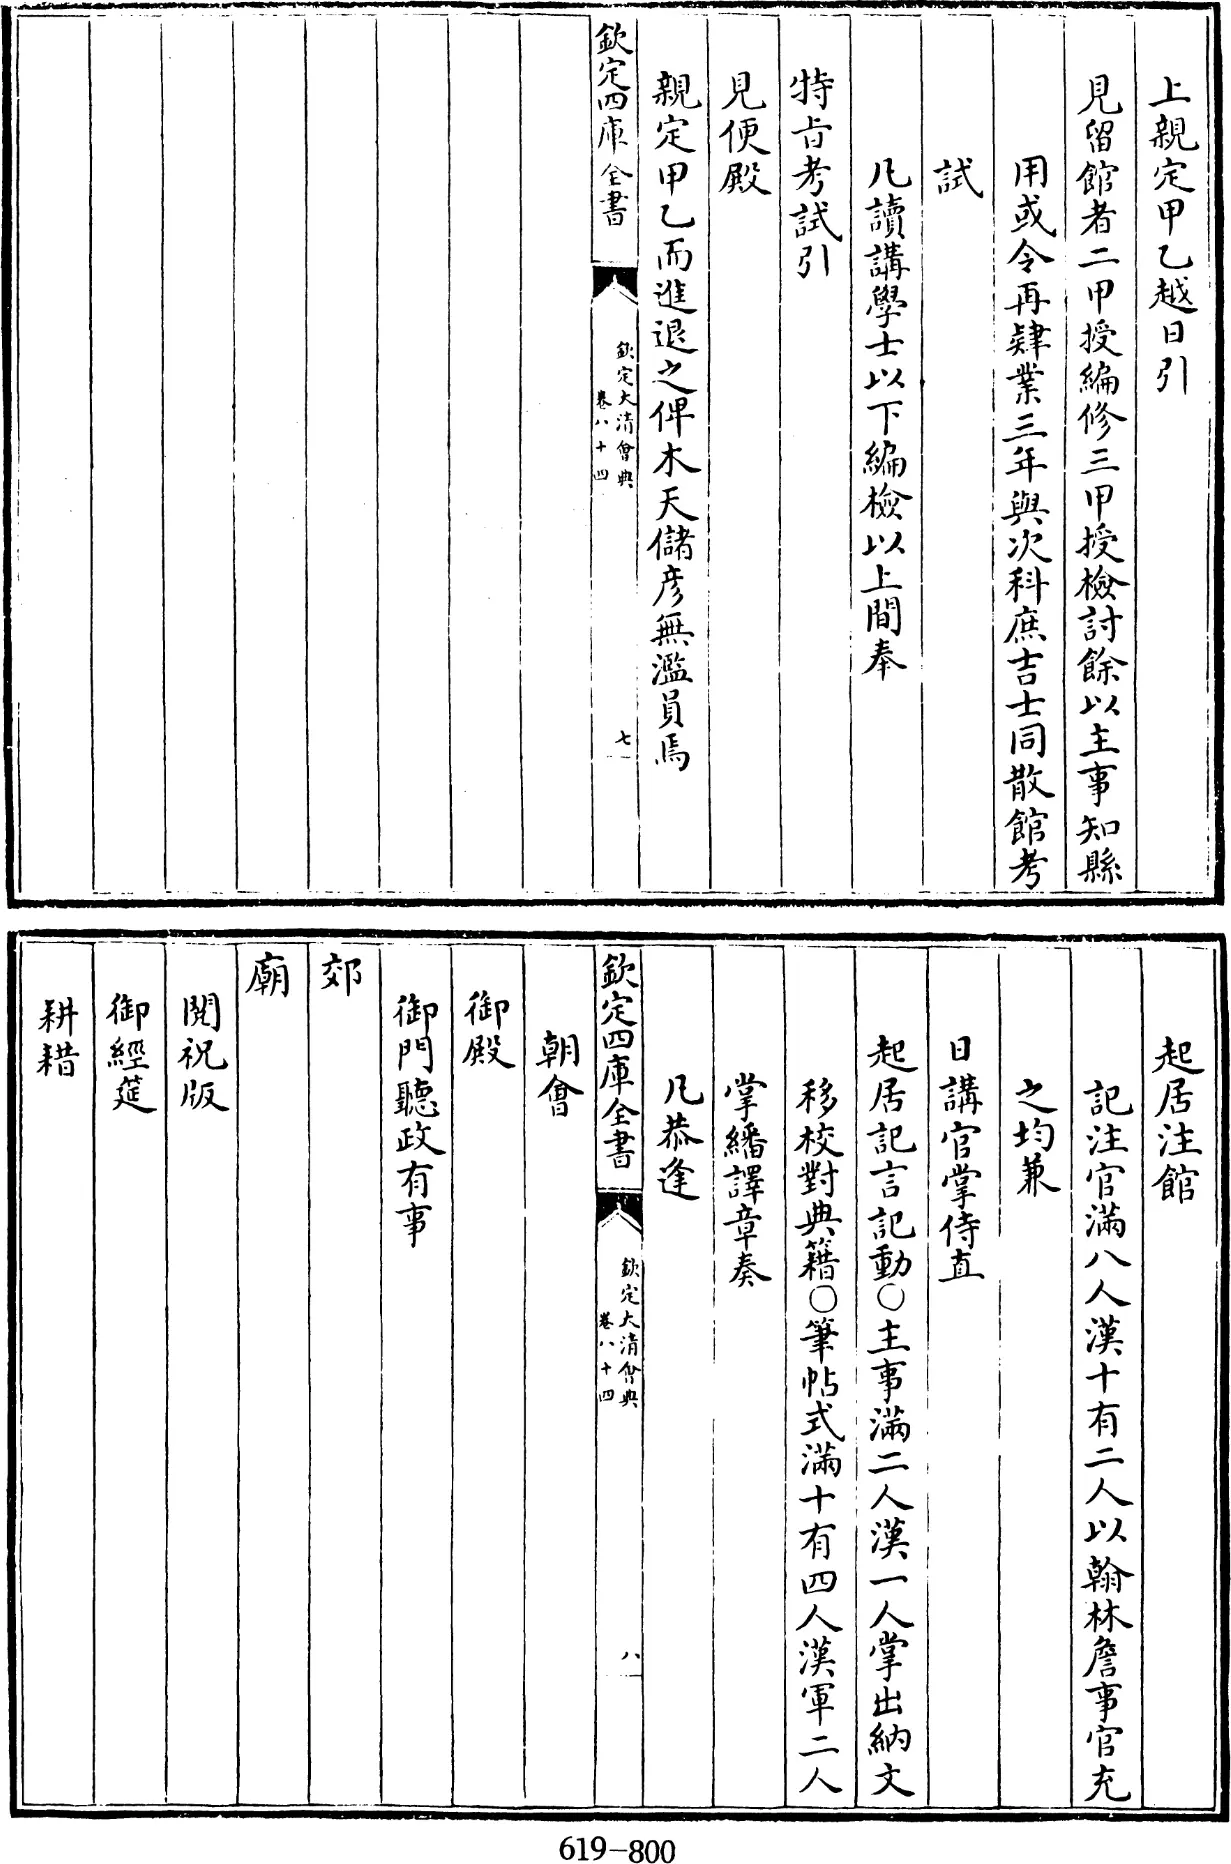 上親定甲乙越日引
見留館者二甲授編修三甲授檢討餘以主事知縣
用或令再肄業三年與次科庶吉士同散館考
試
凡讀講學士以下編檢以上間奉
特旨考試引
見便殿
親定甲乙而進退之俾木天儲彦無濫員焉
欽定四庫全書
欽定大清會典
卷八十四
七
起居注館
記注官滿八人漢十有二人以翰林詹事官充
之均兼
日講官掌侍直
起居記言記動○主事滿二人漢一人掌出納文
移校對典籍○筆帖式滿十有四人漢軍二人
掌繙譯章奏
凡恭逢
欽定四庫全書
欽定大清會典
卷八十四
八
朝會
御殿
御門聽政有事
郊
廟
閱祝版
御經筵
耕耤
619-800